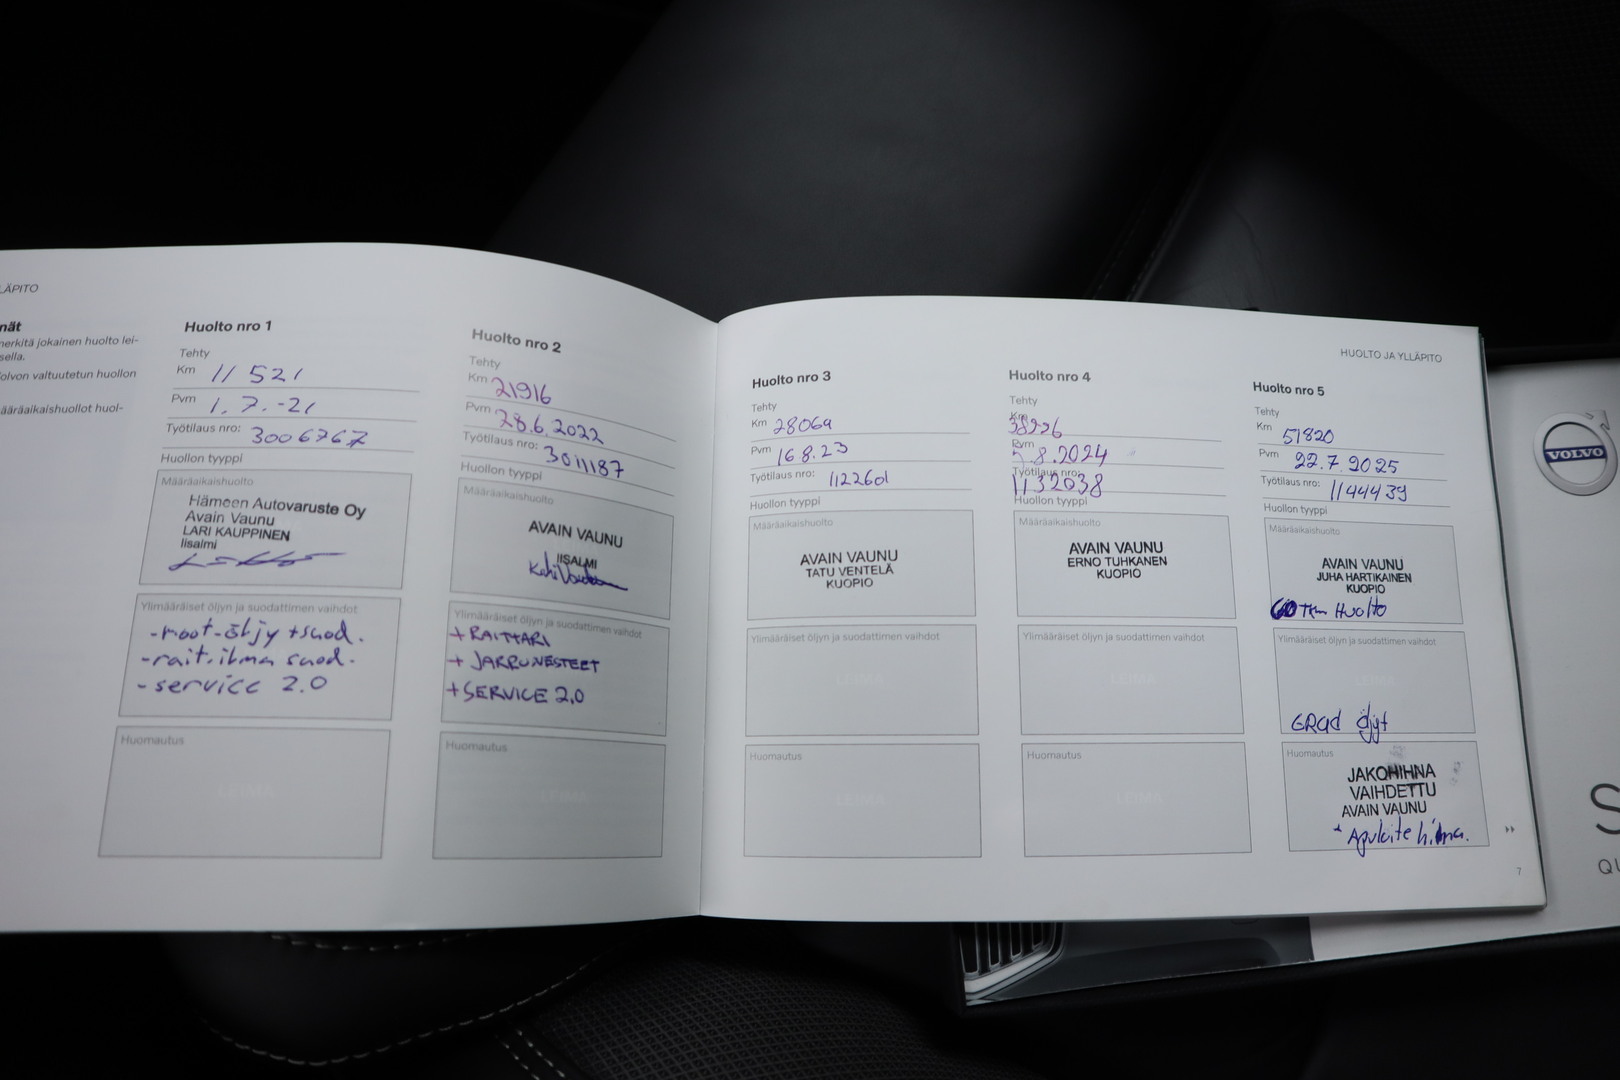 LÄPITO
nät
merkitä jokainen huolto lei-
sella.
olvon valtuutetun huollon
ääräaikaishuollot huol-
Huolto nro 1
Tehty
Km 11 521
Pvm 1.7.-21
Työtilaus nro: 3006767
Huollon tyyppi
Määräaikaishuolto
Hämeen Autovaruste Oy
Avain Vaunu
LARI KAUPPINEN
Iisalmi
Ylimääräiset öljyn ja suodattimen vaihdot
-moot-öljy +suod.
-rait.ilma suod.
-service 2.0
Huomautus
LEIMA
Huolto nro 2
Tehty
Km 21916
Pvm 28.6.2022
Työtilaus nro: 3011187
Huollon tyyppi
Määräaikaishuolto
AVAIN VAUNU
IISALMI
Ylimääräiset öljyn ja suodattimen vaihdot
+ RAITTARI
+ JARRUNESTEET
+ SERVICE 2.0
Huomautus
LEIMA
HUOLTO JA YLLÄPITO
Huolto nro 3
Tehty
Km 28069
Pvm 16.8.23
Työtilaus nro: 1122601
Huollon tyyppi
Määräaikaishuolto
AVAIN VAUNU
TATU VENTELÄ
KUOPIO
Ylimääräiset öljyn ja suodattimen vaihdot
LEIMA
Huomautus
LEIMA
Huolto nro 4
Tehty
Km 38926
Pvm .8.2024
Työtilaus nro: 1132038
Huollon tyyppi
Määräaikaishuolto
AVAIN VAUNU
ERNO TUHKANEN
KUOPIO
Ylimääräiset öljyn ja suodattimen vaihdot
LEIMA
Huomautus
LEIMA
Huolto nro 5
Tehty
Km 51820
Pvm 22.7.2025
Työtilaus nro: 1144439
Huollon tyyppi
Määräaikaishuolto
AVAIN VAUNU
JUHA HARTIKAINEN
KUOPIO
60 Tkm Huolto
Ylimääräiset öljyn ja suodattimen vaihdot
LEIMA
Huomautus
JAKOHIHNA
VAIHDETTU
AVAIN VAUNU
+ Apulaite hihna.
7
VOLVO
S
QU